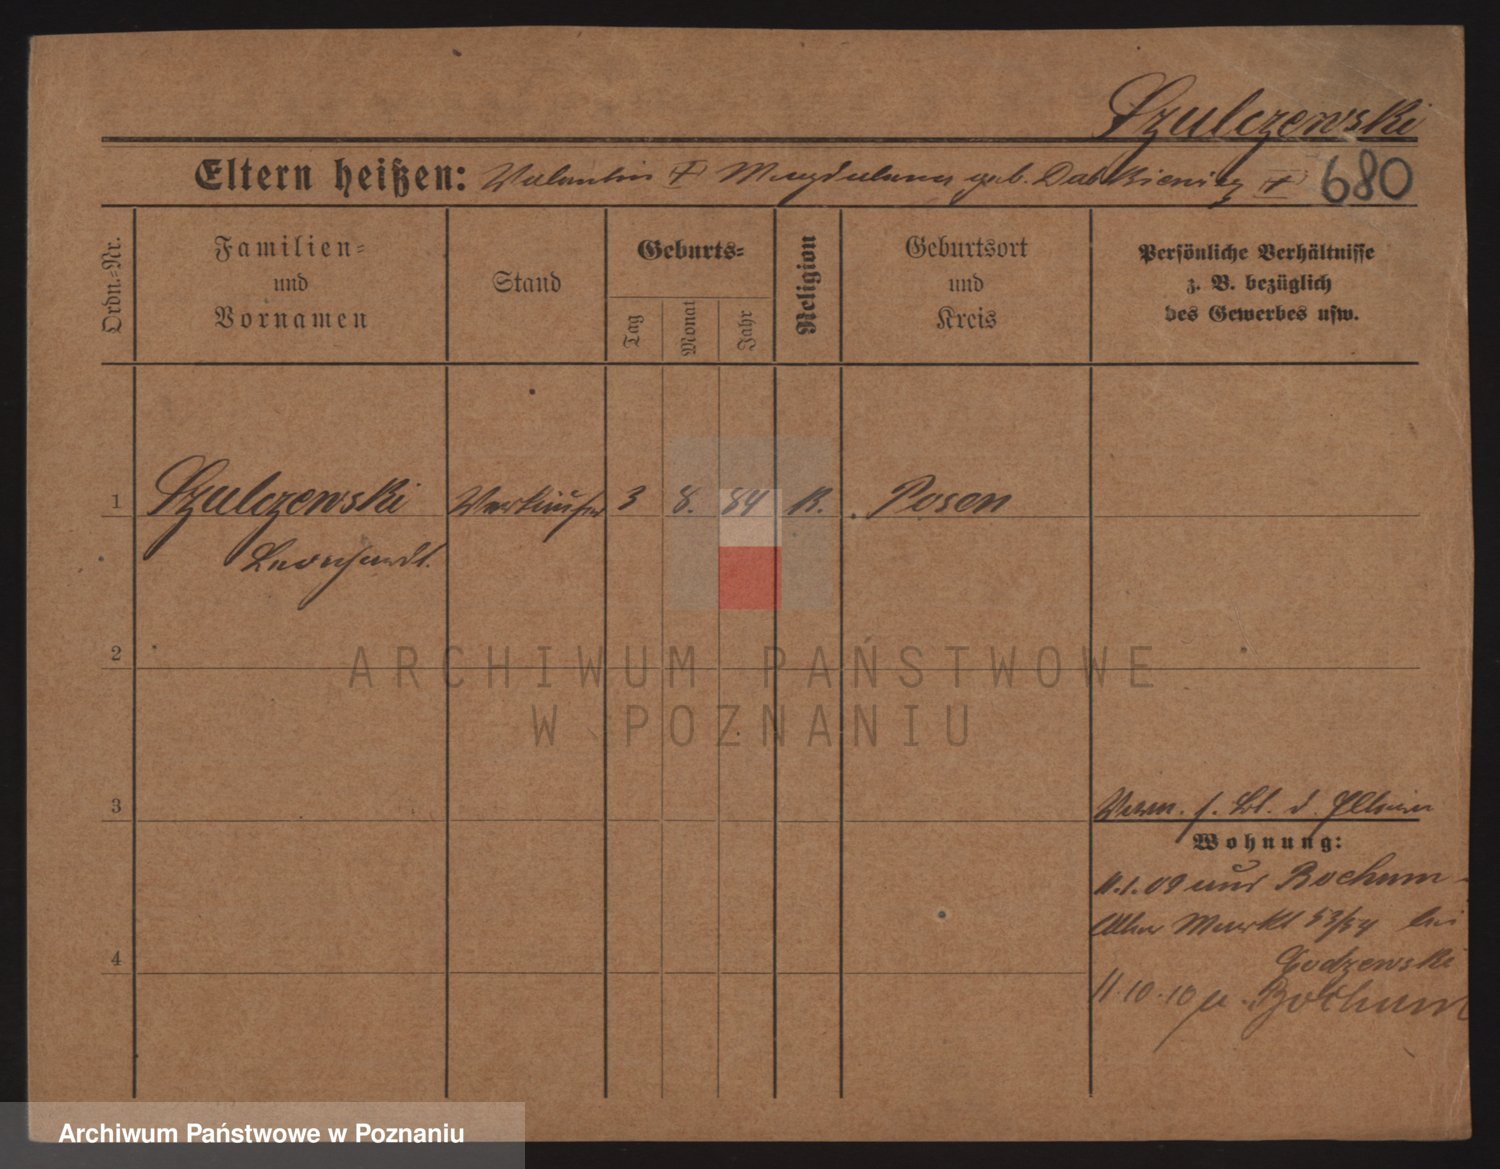 Szulczewski
Eltern heißen: Valentin Magdalena geb. 680
Ordn.-Nr.
Familien-
und
Vornamen
Stand
Geburts-
Tag
Monat
Jahr
Religion
Geburtsort
und
Kreis
Persönliche Verhältnisse
z. B. bezüglich
des Gewerbes usw.
1 Szulczewski Verkäufer 3 8. 84 K. Posen
Leonhardt.
2
ARCHIWUM PAŃSTWOWE
W POZNANIU
3
Wohnung:
11.1.09 Bochum
Alter Markt 53/54 bei
4
11.10.10 Bochum
Archiwum Państwowe w Poznaniu